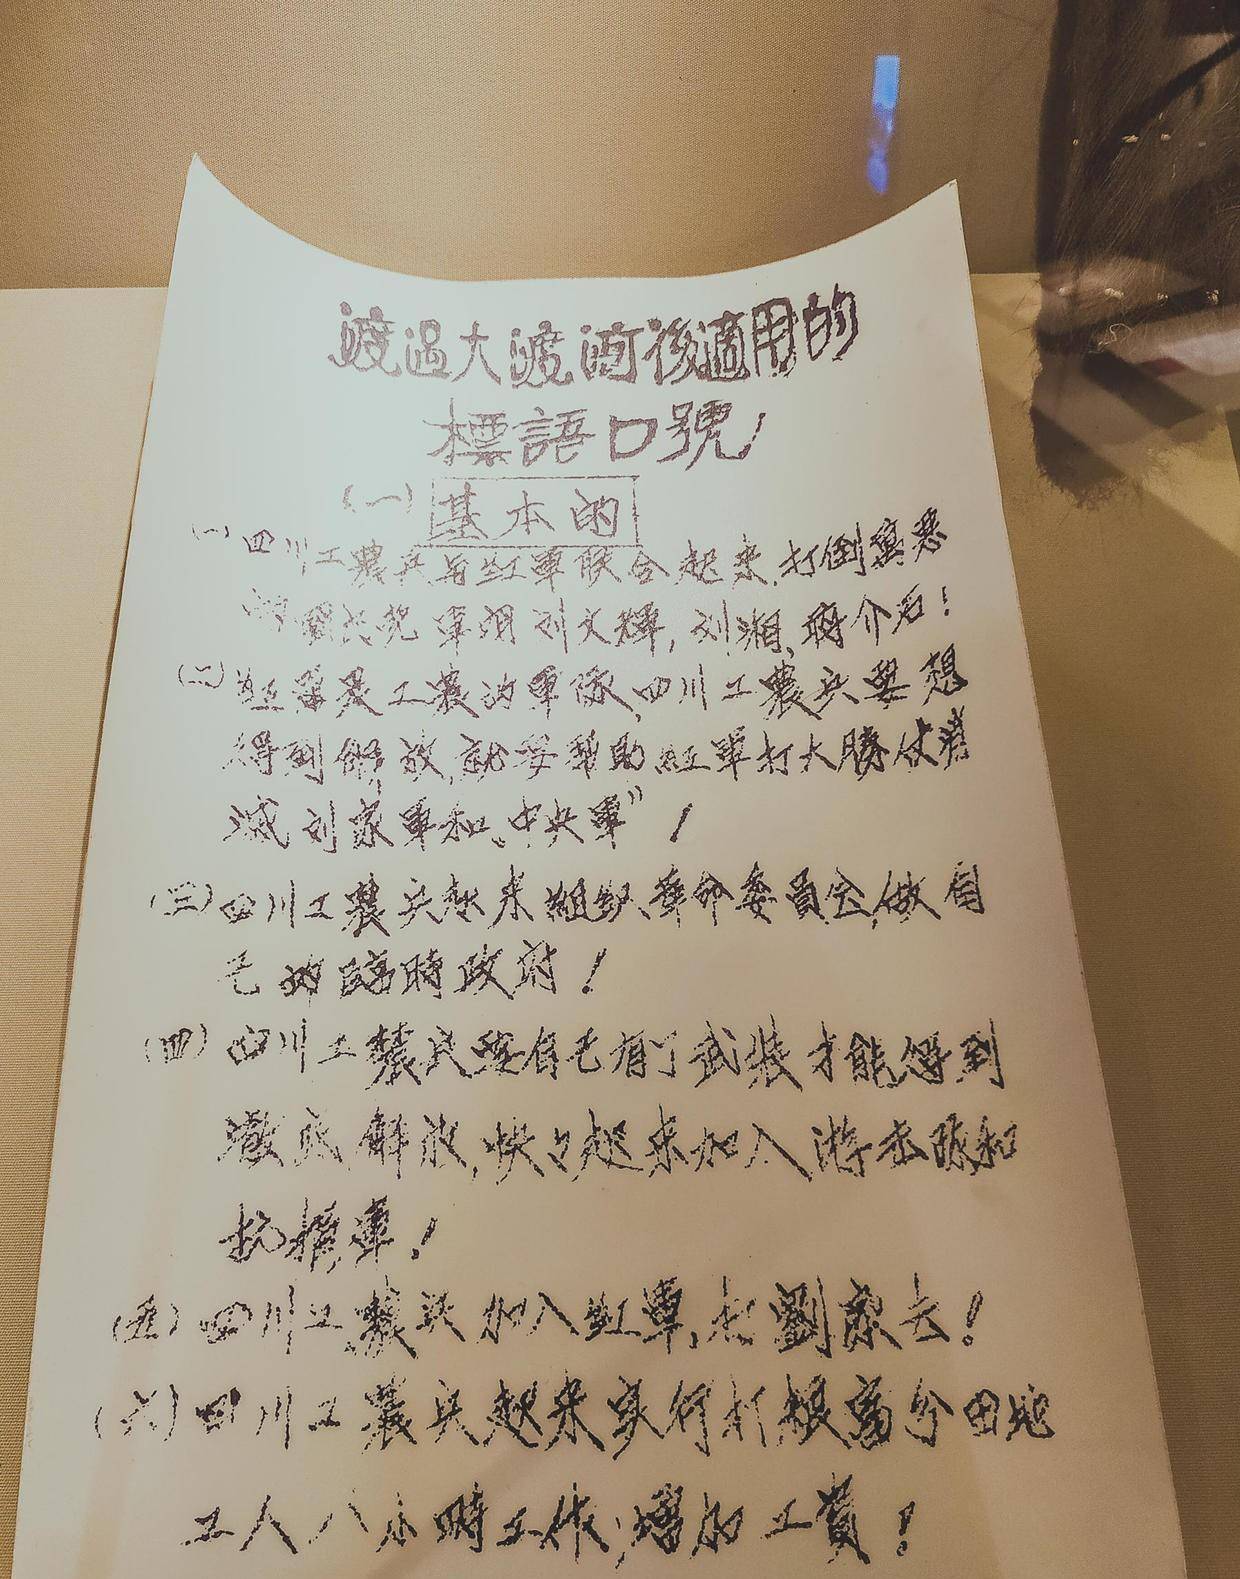 渡過大渡河後適用的
標語口號!
(一) 基本的
(一) 四川工農兵与紅軍联合起來,打倒萬惡
的國民党軍閥刘文輝,刘湘、蔣介石!
(二) 紅軍是工農的軍隊,四川工農兵要想
得到解放,就要幫助紅軍打大勝仗消
滅刘家軍和“中央軍”!
(三) 四川工農兵起來組織革命委員会,做自
己的臨時政府!
(四) 四川工農民要自己有了武裝才能得到
澈底解放,快々起來加入游击隊和
抗捐軍!
(五) 四川工農兵加入紅軍,打劉家去!
(六) 四川工農兵起來实行打粮富分田地
工人八小時工作,增加工資!